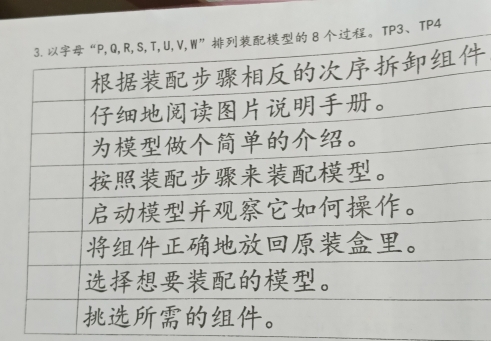 3. 以字母“P,Q,R,S,T,U,V,W”排列装配模型的8个过程。TP3、TP4
根据装配步骤相反的次序拆卸组件
仔细地阅读图片说明手册。
为模型做个简单的介绍。
按照装配步骤来装配模型。
启动模型并观察它如何操作。
将组件正确地放回原装盒里。
选择想要装配的模型。
挑选所需的组件。